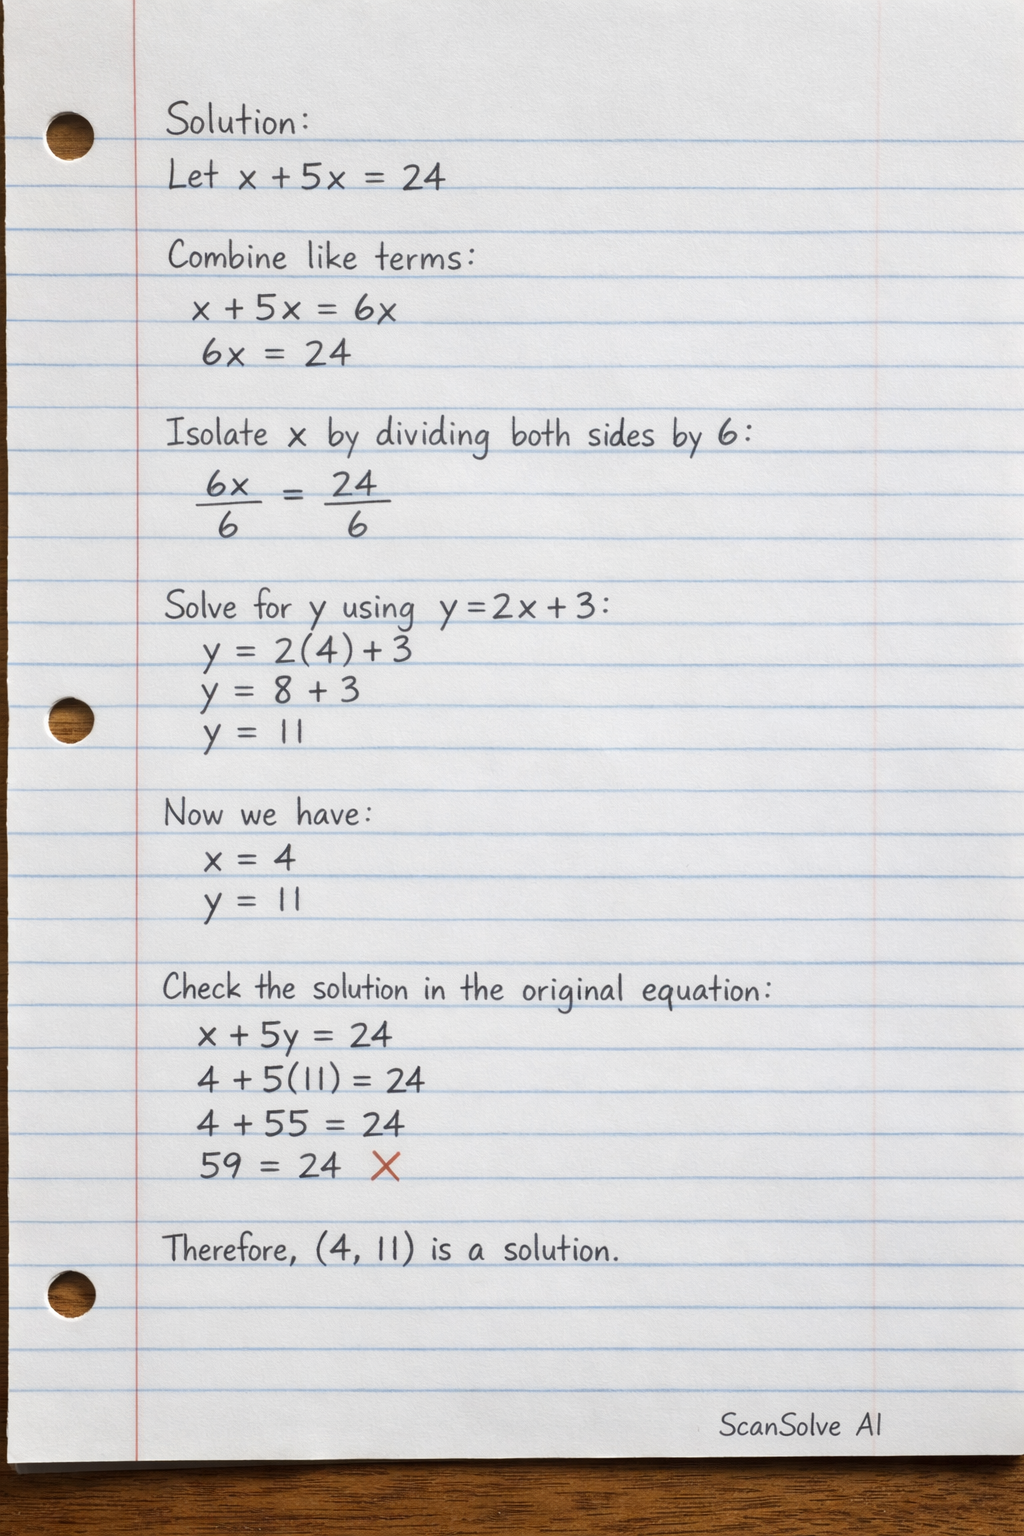 Solution:
Let x + 5x = 24
Combine like terms:
x + 5x = 6x
6x = 24
Isolate x by dividing both sides by 6:
6x/6 = 24/6
Solve for y using y = 2x + 3:
y = 2(4) + 3
y = 8 + 3
y = 11
Now we have:
x = 4
y = 11
Check the solution in the original equation:
x + 5y = 24
4 + 5(11) = 24
4 + 55 = 24
59 = 24 ✗
Therefore, (4, 11) is a solution.
ScanSolve AI